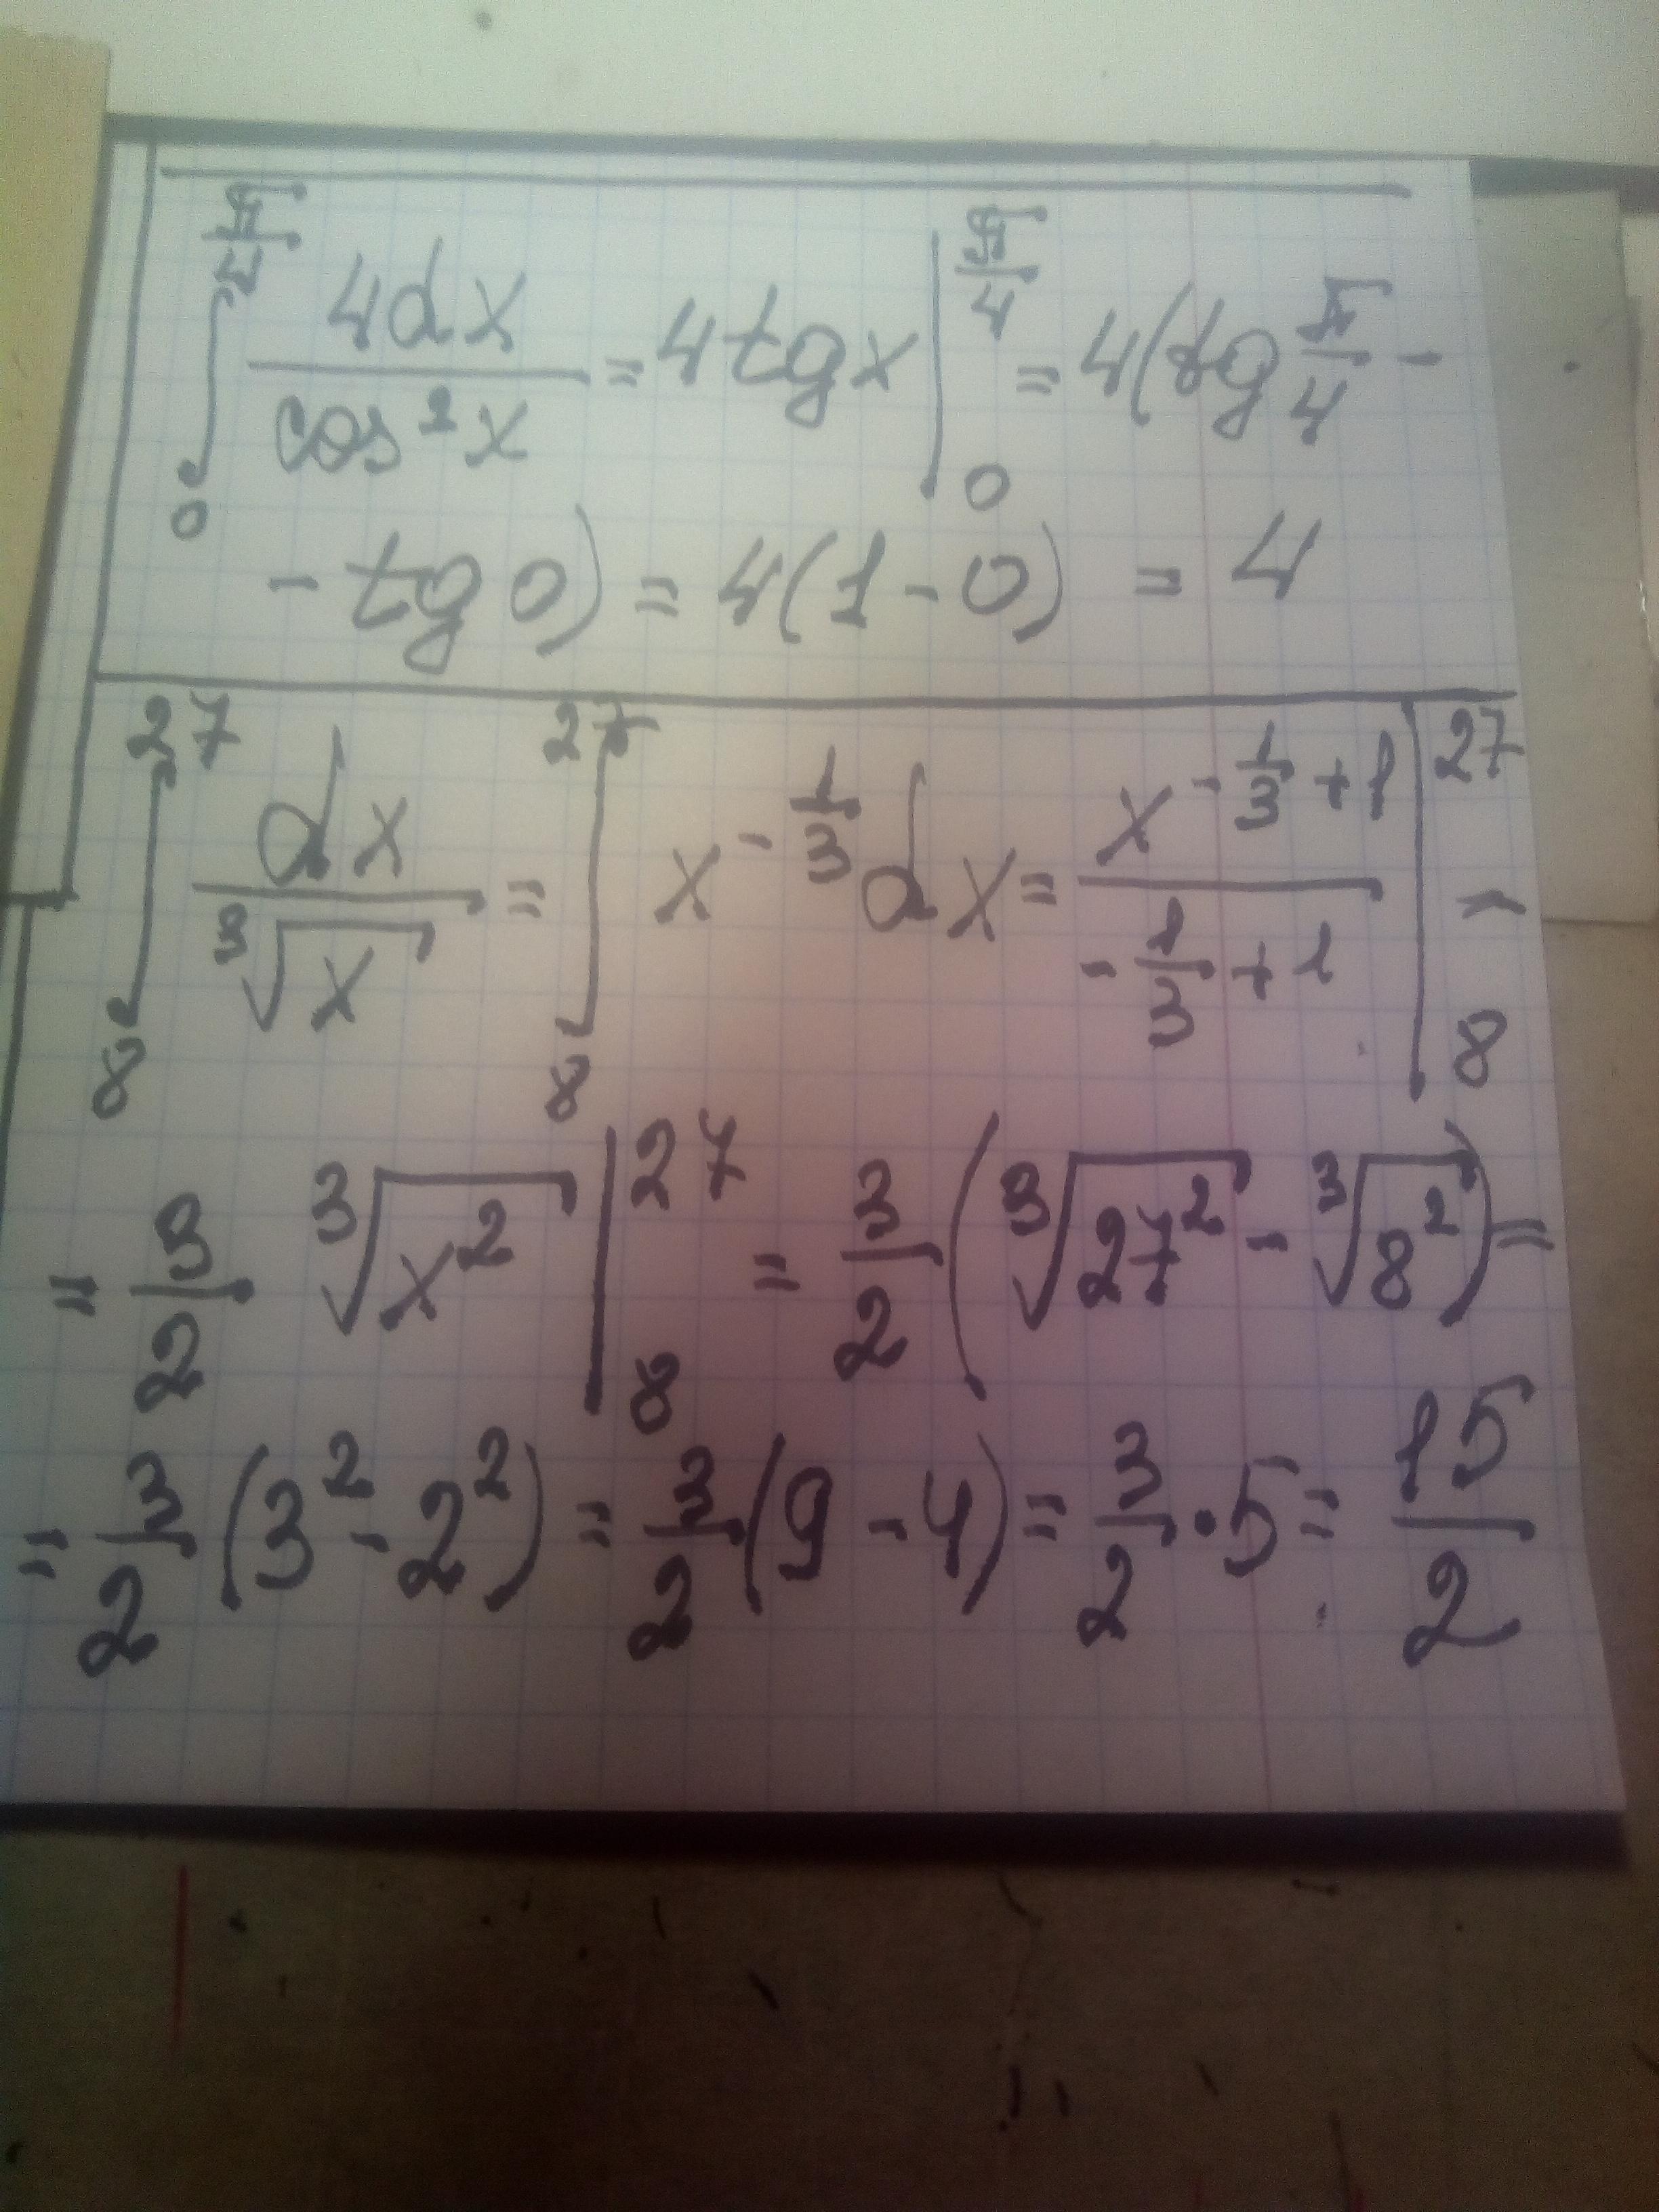 ∫₀^(π/4) 4dx/cos²x = 4tgx |₀^(π/4) = 4(tg π/4 -
- tg 0) = 4(1-0) = 4
∫₈²⁷ dx/∛x = ∫₈²⁷ x^(-1/3) dx = x^(-1/3+1)/(-1/3+1) |₈²⁷ -
= 3/2 ∛(x²) |₈²⁷ = 3/2 (∛(27²) - ∛(8²)) =
= 3/2 (3² - 2²) = 3/2 (9-4) = 3/2 · 5 = 15/2